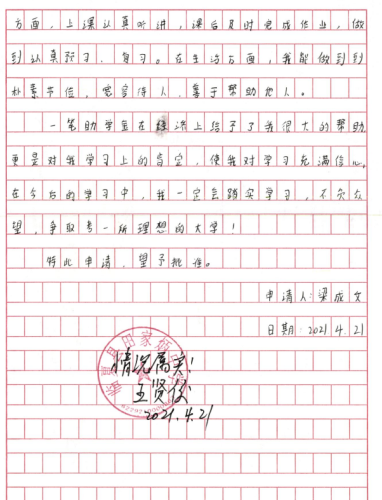 方面,上课认真听讲,课后及时完成作业,做
到认真预习、复习。在生活方面,我能做到到
朴素节俭,宽容待人,善于帮助他人。
一笔助学金在经济上给予了我很大的帮助,
更是对我学习上的肯定,使我对学习充满信心,
在今后的学习中,我一定会踏实学习,不负众
望,争取考一所理想的大学!
特此申请,望予批准。
申请人:梁成文
日期:2021.4.21
情况属实!
王贤
2021.4.21